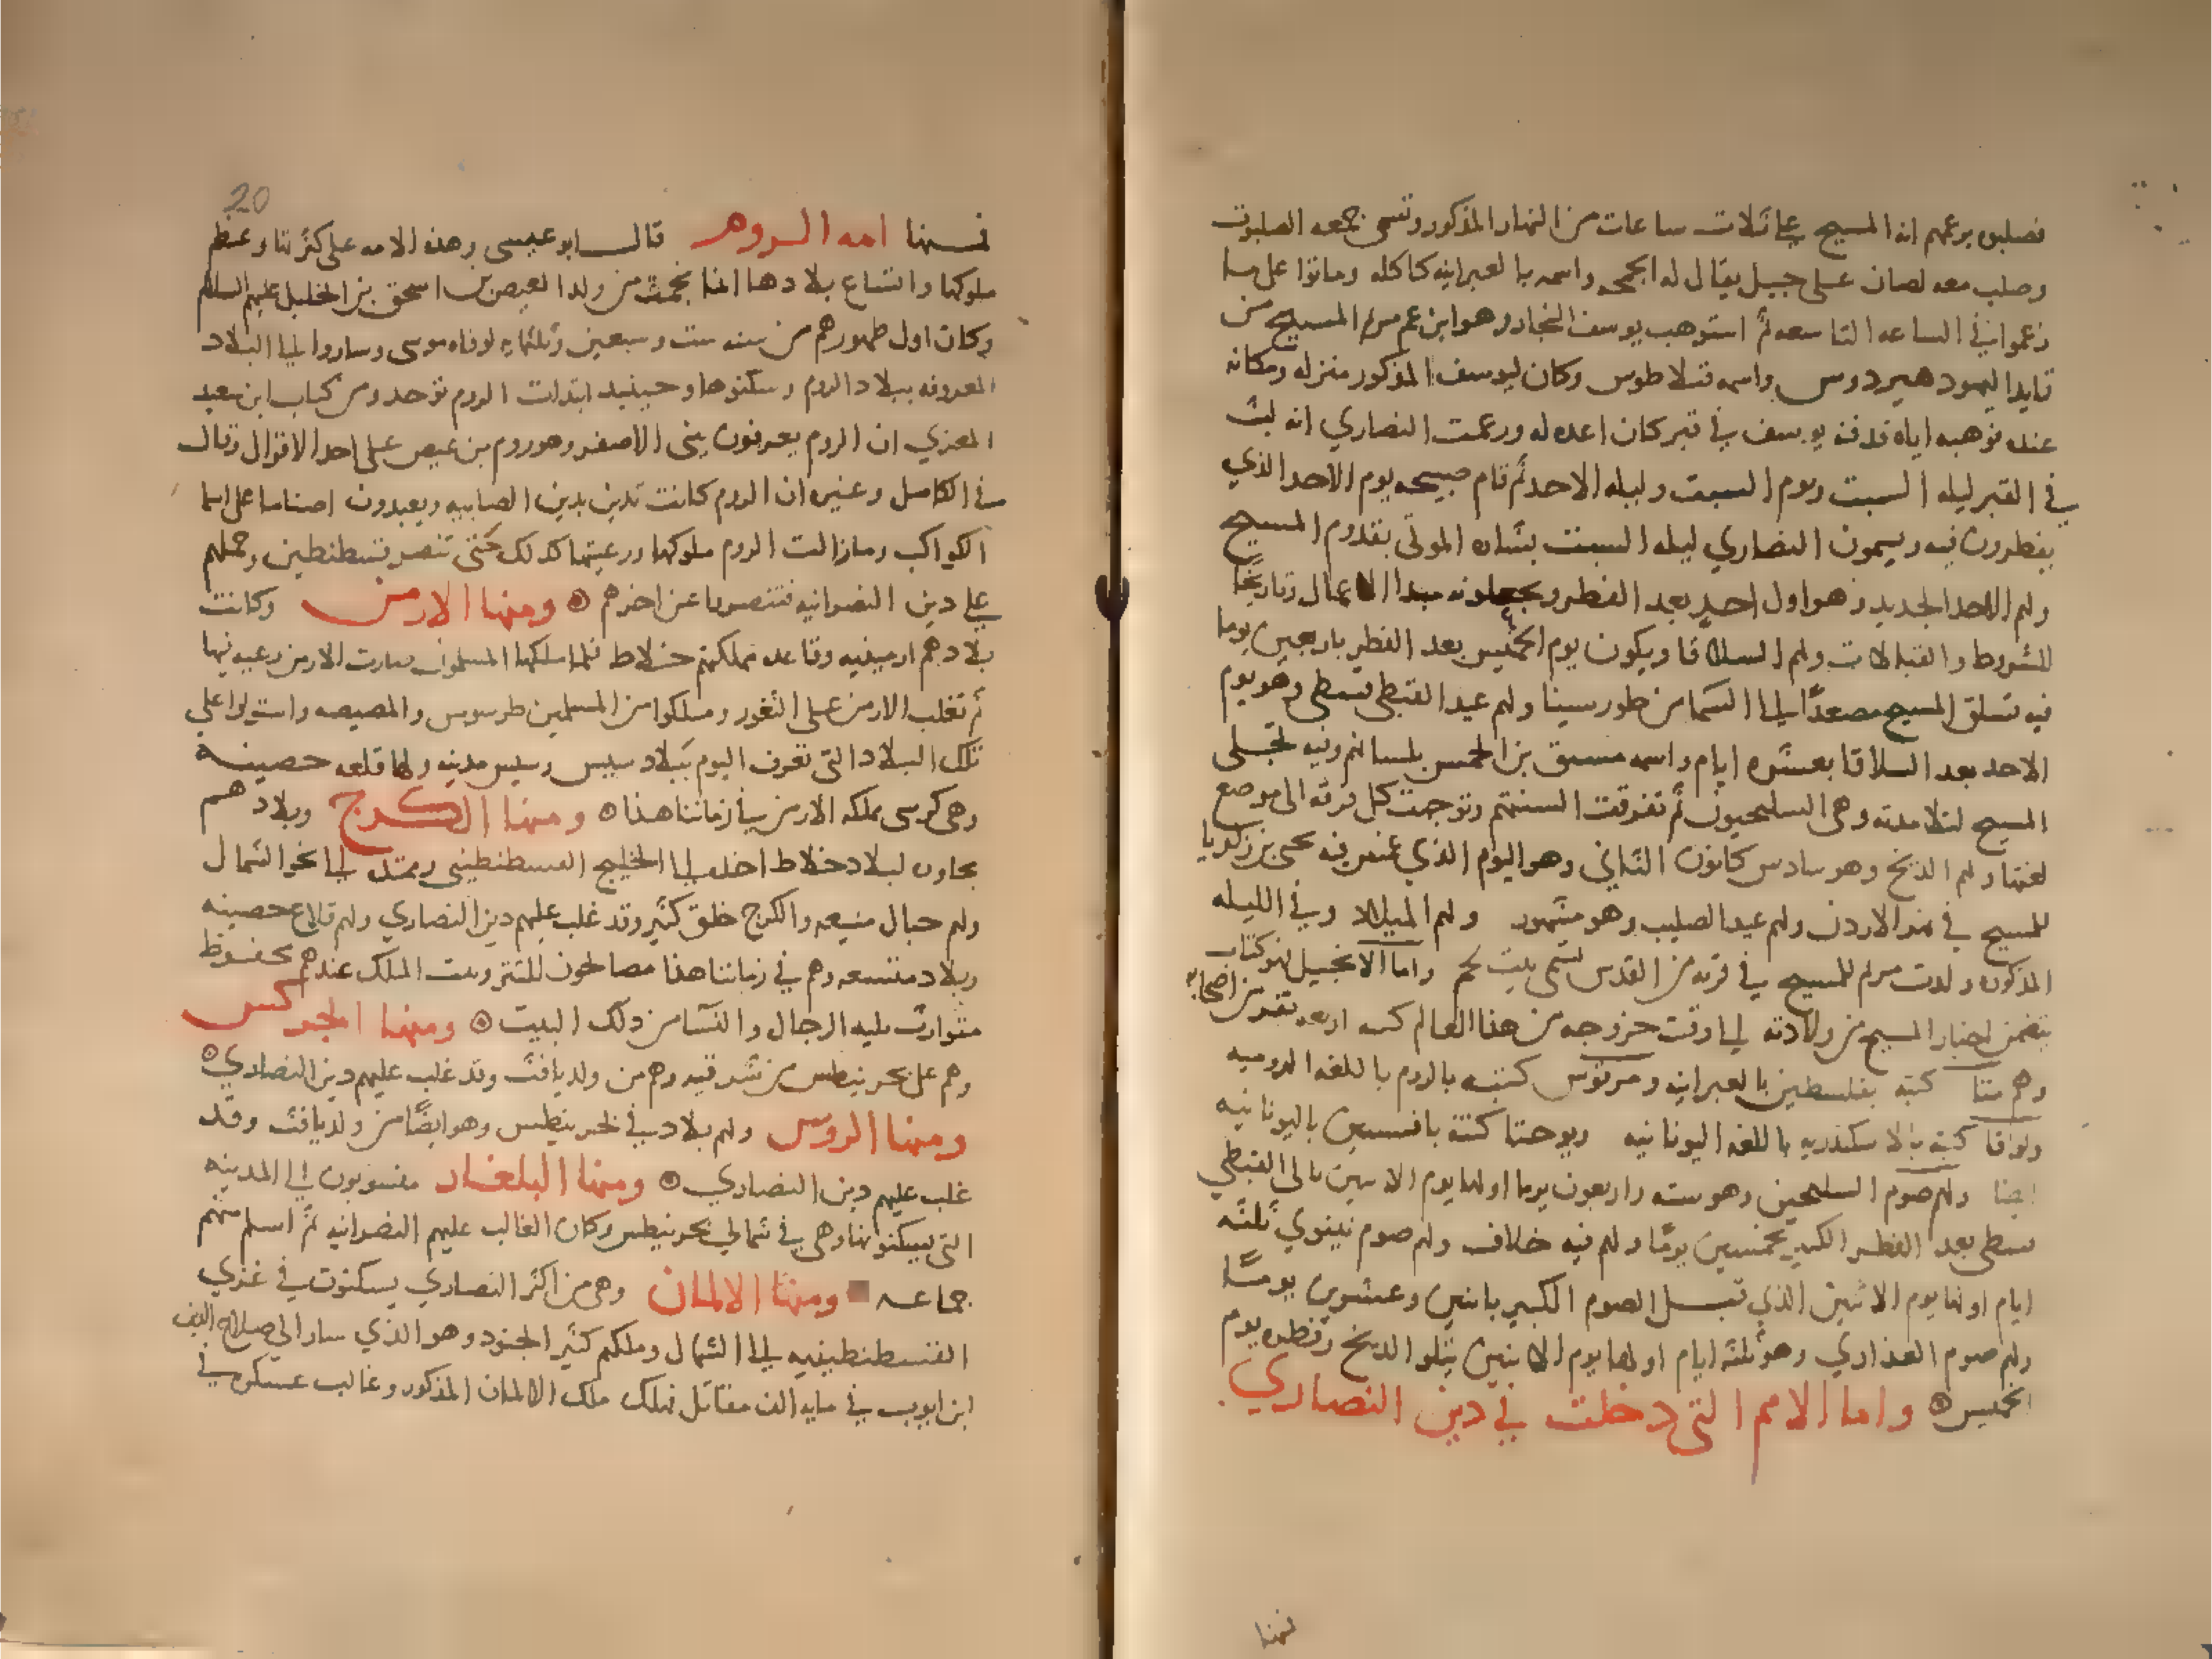 فصلبوه بزعمهم ان المسيح على ثلاث ساعات من النهار المذكور وتسمى جمعه الصلبوت
وصلب معه لصان على جبل يقال له الجمجمه واسمه بالعبرانيه كاكله وماتوا على ما
زعموا في الساعه التاسعه ثم استوهب يوسف النجار وهو ابن عم مريم المسيح من
قايد اليهود هيردوس واسمه قبلاطوس وكان ليوسف المذكور منزله ومكانه
عنده فوهبه اياه فدفنه يوسف في قبر كان اعده له وزعمت النصاري انه لبث
في القبر ليله السبت ويوم السبت وليله الاحد ثم قام صبيحه يوم الاحد الذي
يفطرون فيه ويسمون النصاري ليله السبت بشاره الموتى بقدوم المسيح
ولهم الاحد الجديد وهو اول احد بعد الفطر ويجعلونه مبدا الاعمال وتاريخا
للشروط والقبالات ولهم السلاقا ويكون يوم الخميس بعد الفطر باربعين يوما
فيه تسلق المسيح مصعدا الى السما من طور سينا ولهم عيد الفنطي قسطي وهو يوم
الاحد بعد السلاقا بعشره ايام واسمه مشتق من الخمس بلسانهم وفيه تجلى
المسيح لتلامذته وهى السليحيون ثم تفرقت السنتهم وتوجهت كل فرقه الى موضع
لغتها ولهم الدنح وهو سادس كانون الثاني وهو اليوم الذي غمر فيه يحيى بن زكريا
للمسيح في نهر الاردن ولهم عيد الصليب وهو مشهور ولهم الميلاد وفي الليله
المذكوره ولدت مريم للمسيح في قريه من القدس تسمى بيت لحم واما الانجيل فهو كتاب
يتضمن اخبار المسيح من ولادته الى وقت خروجه من هذا العالم كتبه اربعه نفر من اصحابه
وهم متا كتبه بفلسطين بالعبرانيه ومرقوس كتبه بالروم باللغه الروميه
ولوقا كتبه بالاسكندريه باللغه اليونانيه ويوحنا كتبه بافسيس باليونانيه
ايضا ولهم صوم السليحين وهو سته واربعون يوما اولها يوم الاثنين تالي الفنطي
قسطي بعد الفطر الكبير بخمسين يوما ولهم فيه خلاف ولهم صوم نينوي ثلثه
ايام اولها يوم الاثنين الذي قبل الصوم الكبير باثنين وعشرين يوما
ولهم صوم العذاري وهو ثلثه ايام اولها يوم الاثنين يتلو الدنح وفطره يوم
الخميس واما الامم التى دخلت في دين النصاري
فمنها
20
فمنها امه الروم قال ابو عيسى وهذه الامه على كثرتها وعظم
ملوكها واتساع بلادها انما نجمت من ولد العيص بن اسحق بن الخليل عليهم السلام
وكان اول ظهورهم من سنه ست وسبعين وثلثمايه لوفاه موسى وساروا الى البلاد
المعروفه ببلاد الروم وسكنوها وحينيد ابتدات الروم توجد ومن كتاب ابن سعيد
المغربي ان الروم يعرفون ببنى الاصفر وهو روم بن عيص على احد الاقوال وقال
في الكامل وغيره ان الروم كانت تدين بدين الصابيه ويعبدون اصناما على اسما
الكواكب ومازالت الروم ملوكها ورعيتها كذلك حتى تنصر قسطنطين وحملهم
على دين النصرانيه فتنصروا عن اخرهم ومنها الارمن وكانت
بلادهم ارمينيه وقاعده مملكتهم خلاط فلما ملكها المسلمون صارت الارمن رعيه فيها
ثم تغلب الارمن على الثغور وملكوا من المسلمين طرسوس والمصيصه واستولوا على
تلك البلاد التى تعرف اليوم ببلاد سيس وسيس مدينه ولها قلعه حصينه
وهى كرسى مملكه الارمن في زماننا هذا ومنها الكرج وبلادهم
مجاوره لبلاد خلاط اخذه الى الخليج القسطنطيني وممتده الى نحو الشمال
ولهم جبال منيعه والكرج خلق كثير وقد غلب عليهم دين النصاري ولهم قلاع حصينه
وبلاد متسعه وهم في زماننا هذا مصالحون للتتر وبيت الملك عندهم محفوظ
متوارث يليه الرجال والنسا من ذلك البيت ومنها الجركس
وهم على بحر نيطس من شرقيه وهم من ولد يافث وقد غلب عليهم دين النصاري
ومنها الروس ولهم بلاد في بحر نيطس وهو ايضا من ولد يافث وقد
غلب عليهم دين النصاري ومنها البلغار منسوبون الى المدينه
التى يسكنونها وهى في شمالي بحر نيطس وكان الغالب عليهم النصرانيه ثم اسلم منهم
جماعه ومنها الالمان وهى من اكثر النصاري يسكنون في غربي
القسطنطينيه الى الشمال وملكهم كثير الجنود وهو الذي سار الى صلاح الدين
ابن ايوب في مايه الف مقاتل فهلك ملك الالمان المذكور وغالب عسكره في